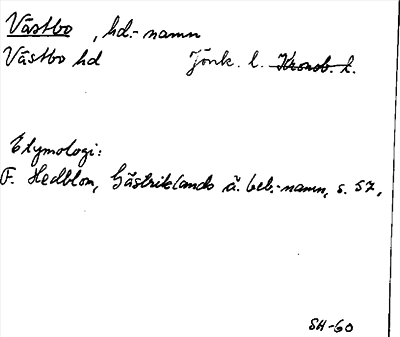 Västbo, hd.-namn
Västbo hd Jönk. l. Kronob. l.
Etymologi:
F. Hedblom, Gästriklands ä. beb.-namn, s. 57,
SH-60